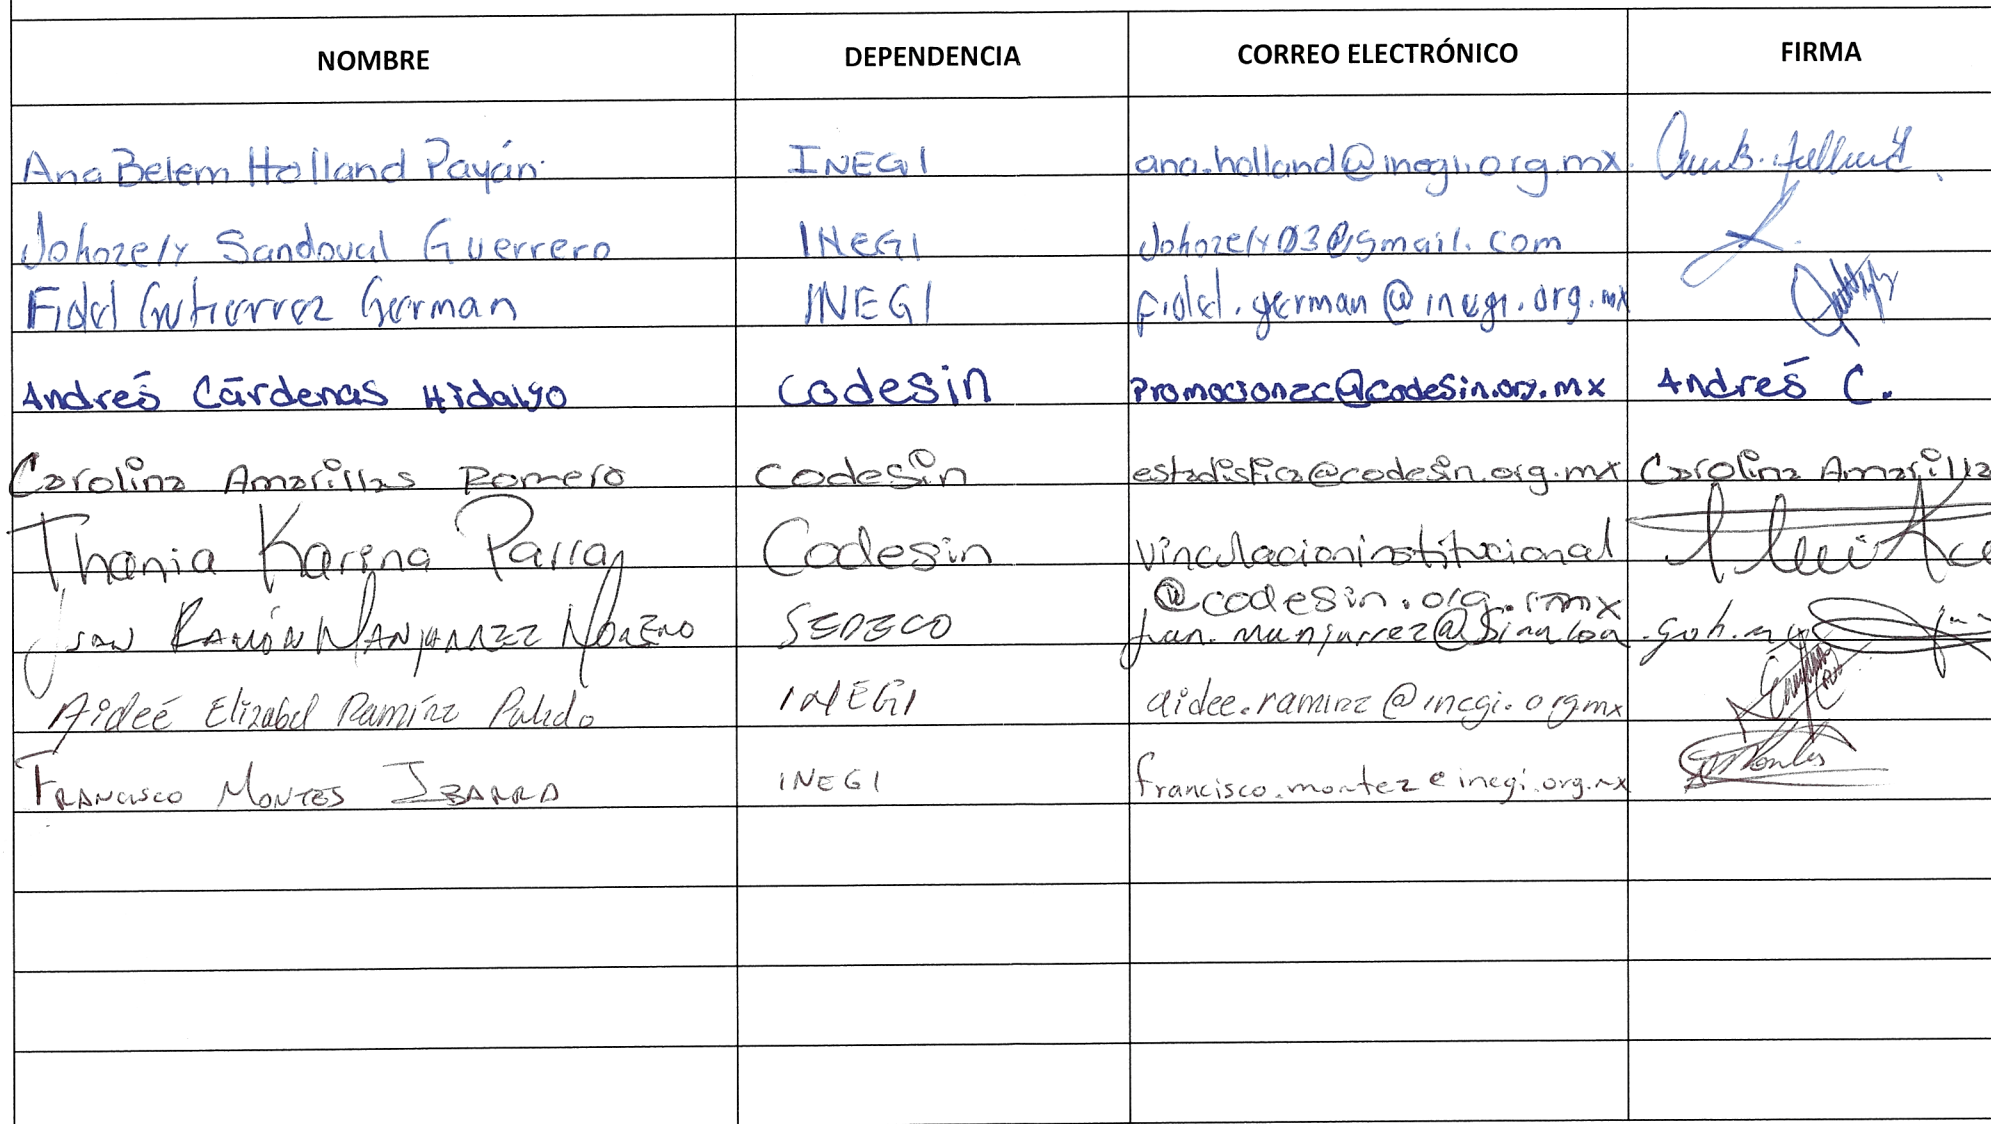 NOMBRE DEPENDENCIA CORREO ELECTRÓNICO FIRMA
Ana Belem Holland Payán. INEGI ana.holland@inegi.org.mx.
Johozely Sandoval Guerrero INEGI Johozely03@gmail.com
Fidel Gutierrez German INEGI fidel.german@inegi.org.mx
Andrés Cárdenas Hidalgo Codesin Promocionzc@codesin.org.mx Andrés C.
Carolina Amarillas Romero Codesin estadistica@codesin.org.mx Carolina Amarilla
Thania Karina Parra Codesin vinculacioninstitucional
@codesin.org.mx
Juan Ramón Manjarrez Moreno SEDECO juan.manjarrez@sinaloa.gob.mx
Aideé Elizabel Ramírez Pulido INEGI aidee.ramirez@inegi.org.mx
Francisco Montes Ibarra INEGI francisco.montez@inegi.org.mx